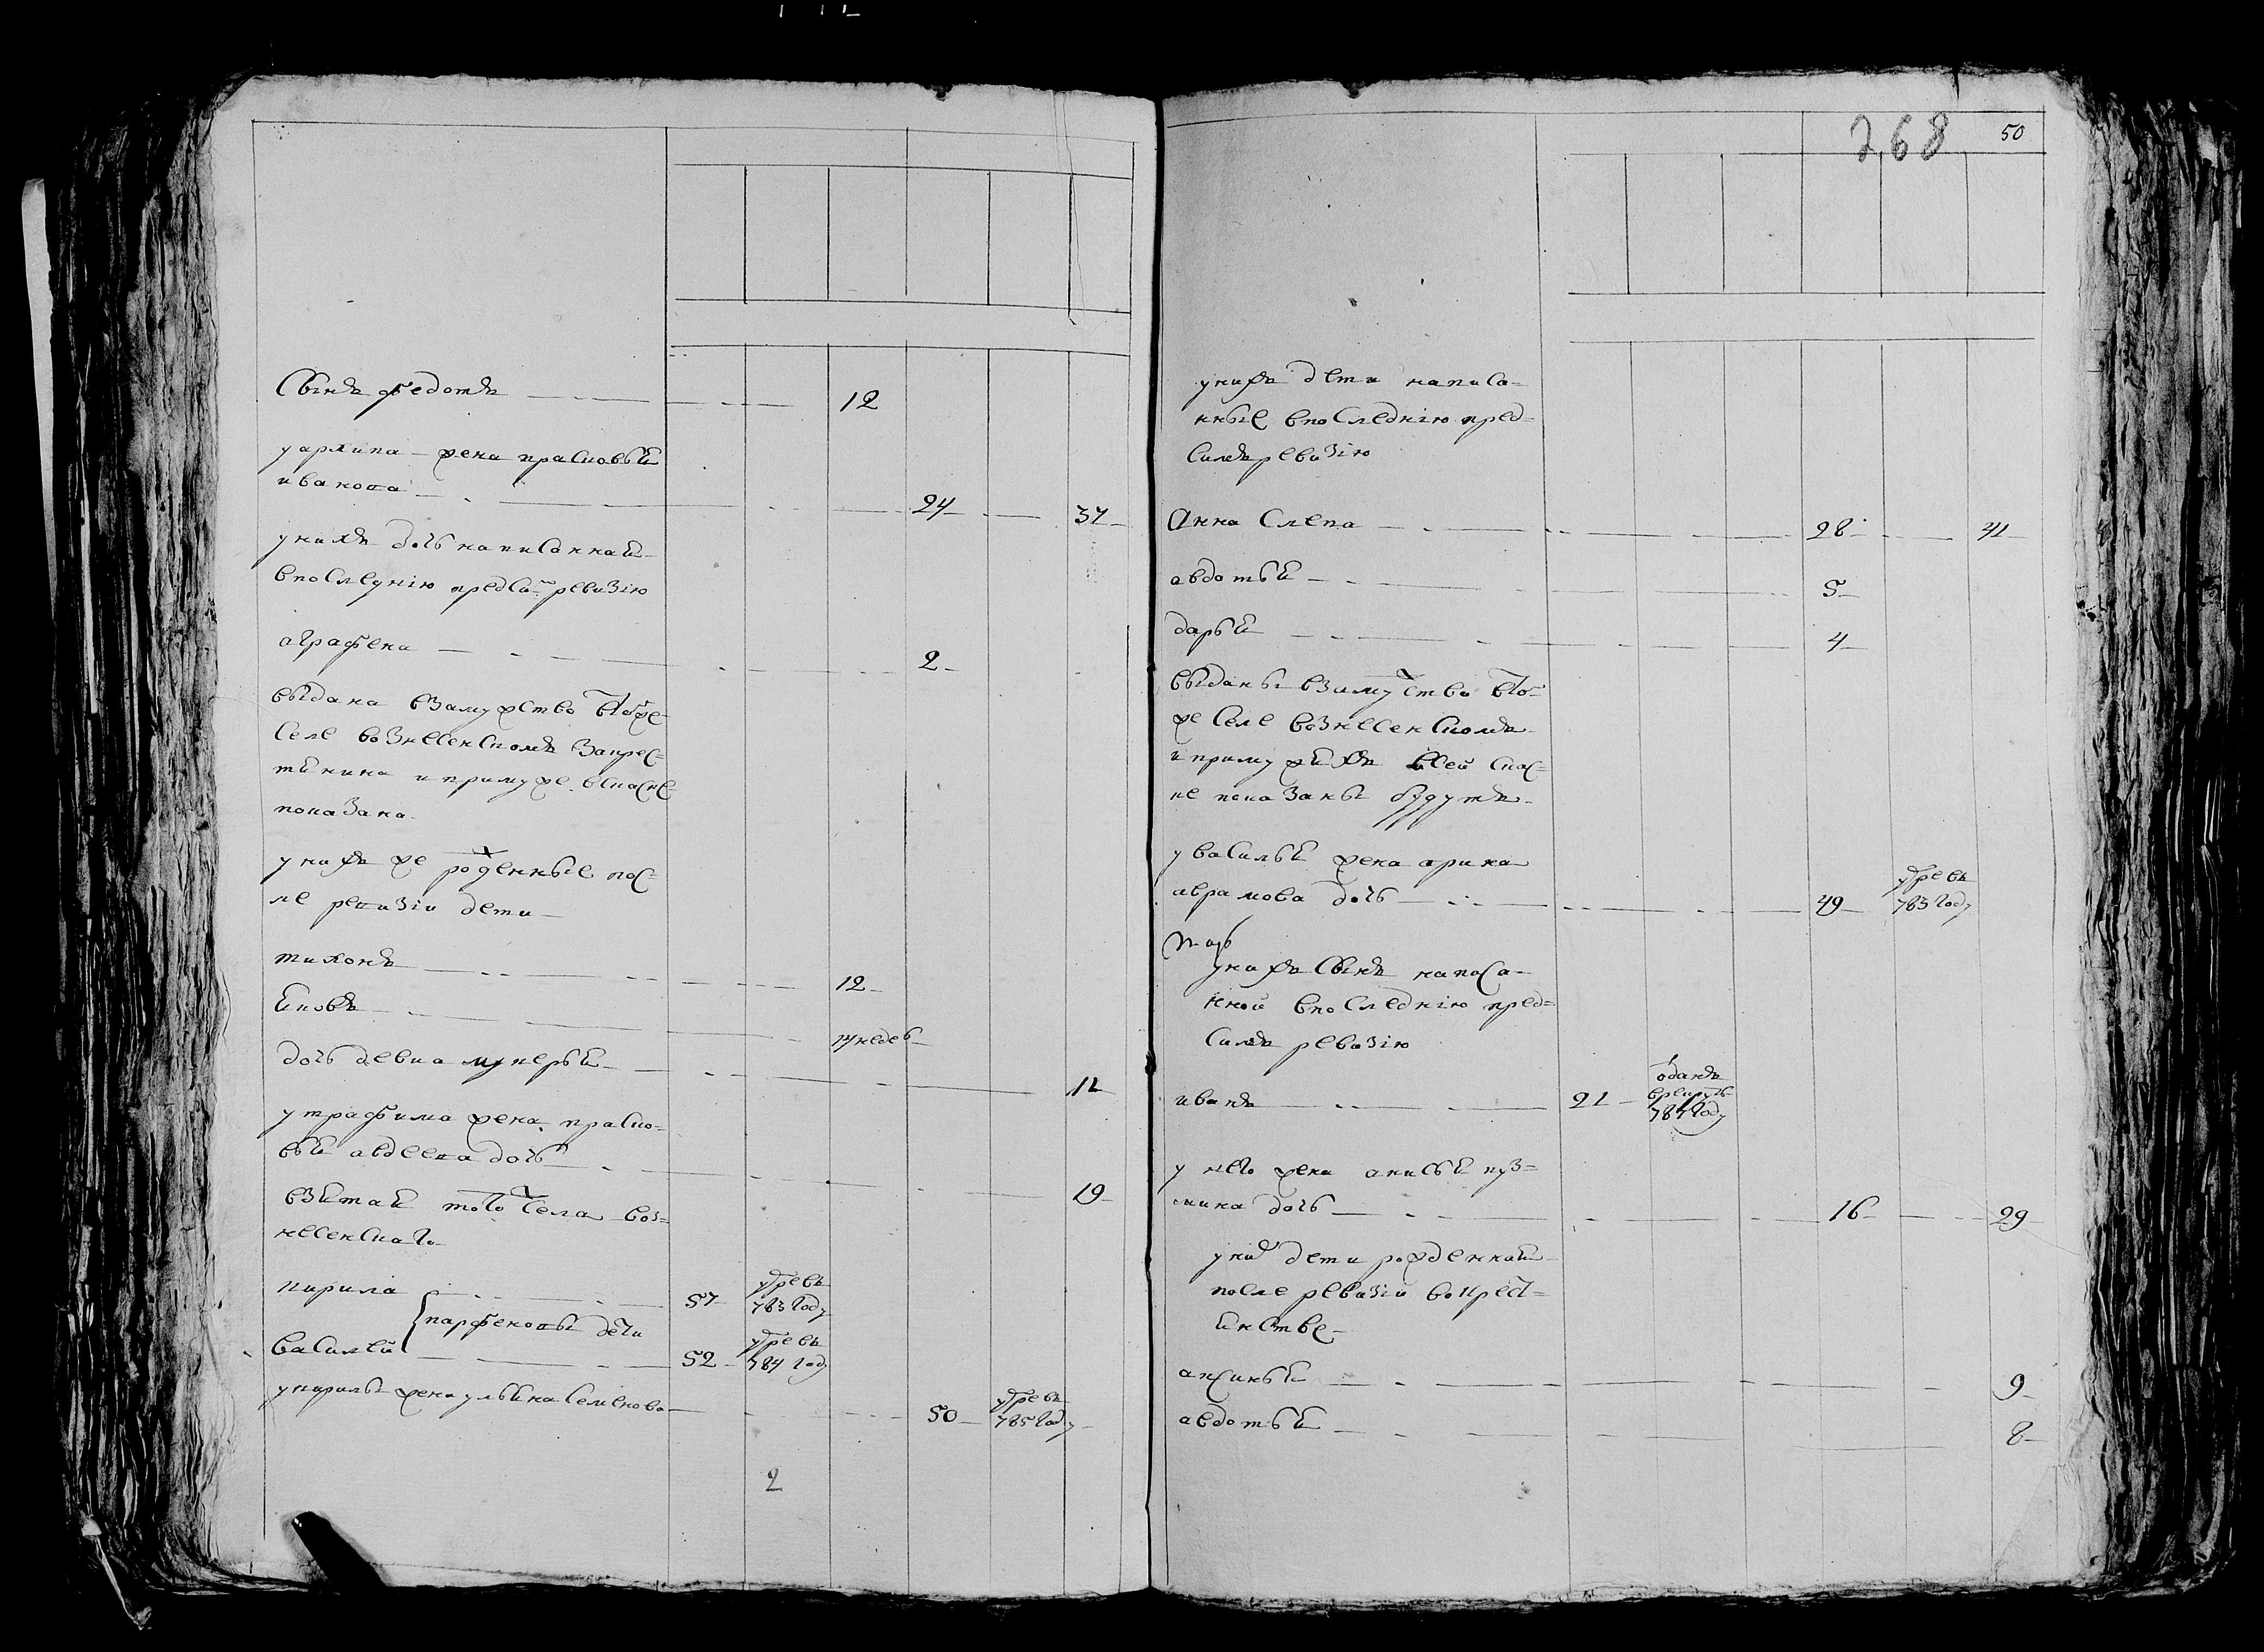 Сынъ федотъ 12
у архипа жена прасковья
иванова 24 37
у нихъ дочь написанная
в последнюю пред сим ревизию
аграфена 2
выдана взамужство в том же
селе вознесенскомъ за крес-
тьянина и при муже в скаске
показана
у нихъ же рожденные пос-
ле ревизии дети
тихонъ 12
яковъ недель
дочь девка лукерья 11
у трафима жена праско-
вья авдеева дочь 19
взятая того ж села воз-
несенскаго
кирила 57 умре въ 783 году
парфеновы дети
василей 52 умре въ 784 году
у кирилы жена ульяна семенова 50 умре въ 785 году
2
268 50
у нихъ дети написа-
нные в последнюю пред
симъ ревизию
Анна слепа 28 41
авдотья 5
дарья 4
выданы взамужство в том
же селе вознесенскомъ
и при мужьяхъ в сей скас-
ке показаны будутъ
у василья жена арина
аврамова дочь 49 умре въ 783 году
у нихъ сынъ написа-
нной в последнюю пред
симъ ревизию
иванъ 21 отданъ в рекруты 787 году
у него жена анисья куз-
мина дочь 16 29
у них дети рожденная
после ревизии во крест-
янстве
аксинья 9
авдотья 8